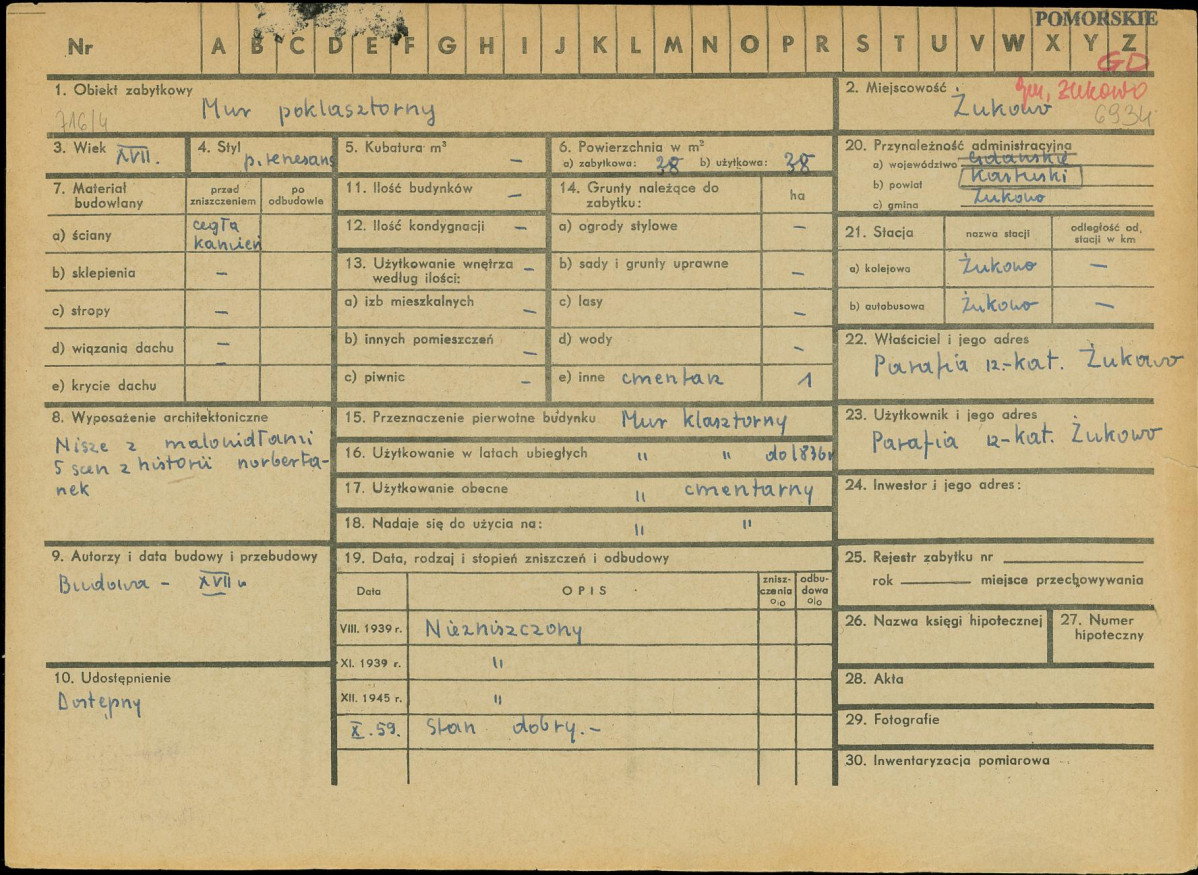 POMORSKIE
Nr A B C D E F G H I J K L M N O P R S T U V W X Y Z
GD
1. Obiekt zabytkowy
Mur poklasztorny
716/4
2. Miejscowość gm. Żukowo
Żukowo 6934
3. Wiek XVII.
4. Styl p. renesans
5. Kubatura m³ –
6. Powierzchnia w m²
a) zabytkowa: 38 b) użytkowa: 38
7. Materiał budowlany
przed zniszczeniem
po odbudowie
a) ściany cegła
kamień
b) sklepienia –
c) stropy –
d) wiązania dachu –
–
e) krycie dachu
11. Ilość budynków –
12. Ilość kondygnacji –
13. Użytkowanie wnętrza –
według ilości:
a) izb mieszkalnych –
b) innych pomieszczeń –
c) piwnic –
14. Grunty należące do
zabytku:
ha
a) ogrody stylowe –
b) sady i grunty uprawne –
c) lasy –
d) wody –
e) inne cmentarz 1
20. Przynależność administracyjna
a) województwo Gdańskie
b) powiat Kartuski
c) gmina Żukowo
21. Stacja
nazwa stacji
odległość od
stacji w km
a) kolejowa Żukowo –
b) autobusowa Żukowo –
22. Właściciel i jego adres
Parafia rz.-kat. Żukowo
8. Wyposażenie architektoniczne
Nisze z malowidłami
5 scen z historii norberta-
nek
15. Przeznaczenie pierwotne budynku Mur klasztorny
16. Użytkowanie w latach ubiegłych " " do 1836r
17. Użytkowanie obecne " cmentarny
18. Nadaje się do użycia na: " "
23. Użytkownik i jego adres
Parafia rz-kat. Żukowo
24. Inwestor i jego adres:
9. Autorzy i data budowy i przebudowy
Budowa – XVII w
10. Udostępnienie
Dostępny
19. Data, rodzaj i stopień zniszczeń i odbudowy
Data
OPIS
znisz-
czenia
%
odbu-
dowa
%
VIII. 1939 r. Niezniszczony
XI. 1939 r. "
XII. 1945 r. "
X. 59. Stan dobry. –
25. Rejestr zabytku nr
rok miejsce przechowywania
26. Nazwa księgi hipotecznej
27. Numer
hipoteczny
28. Akta
29. Fotografie
30. Inwentaryzacja pomiarowa